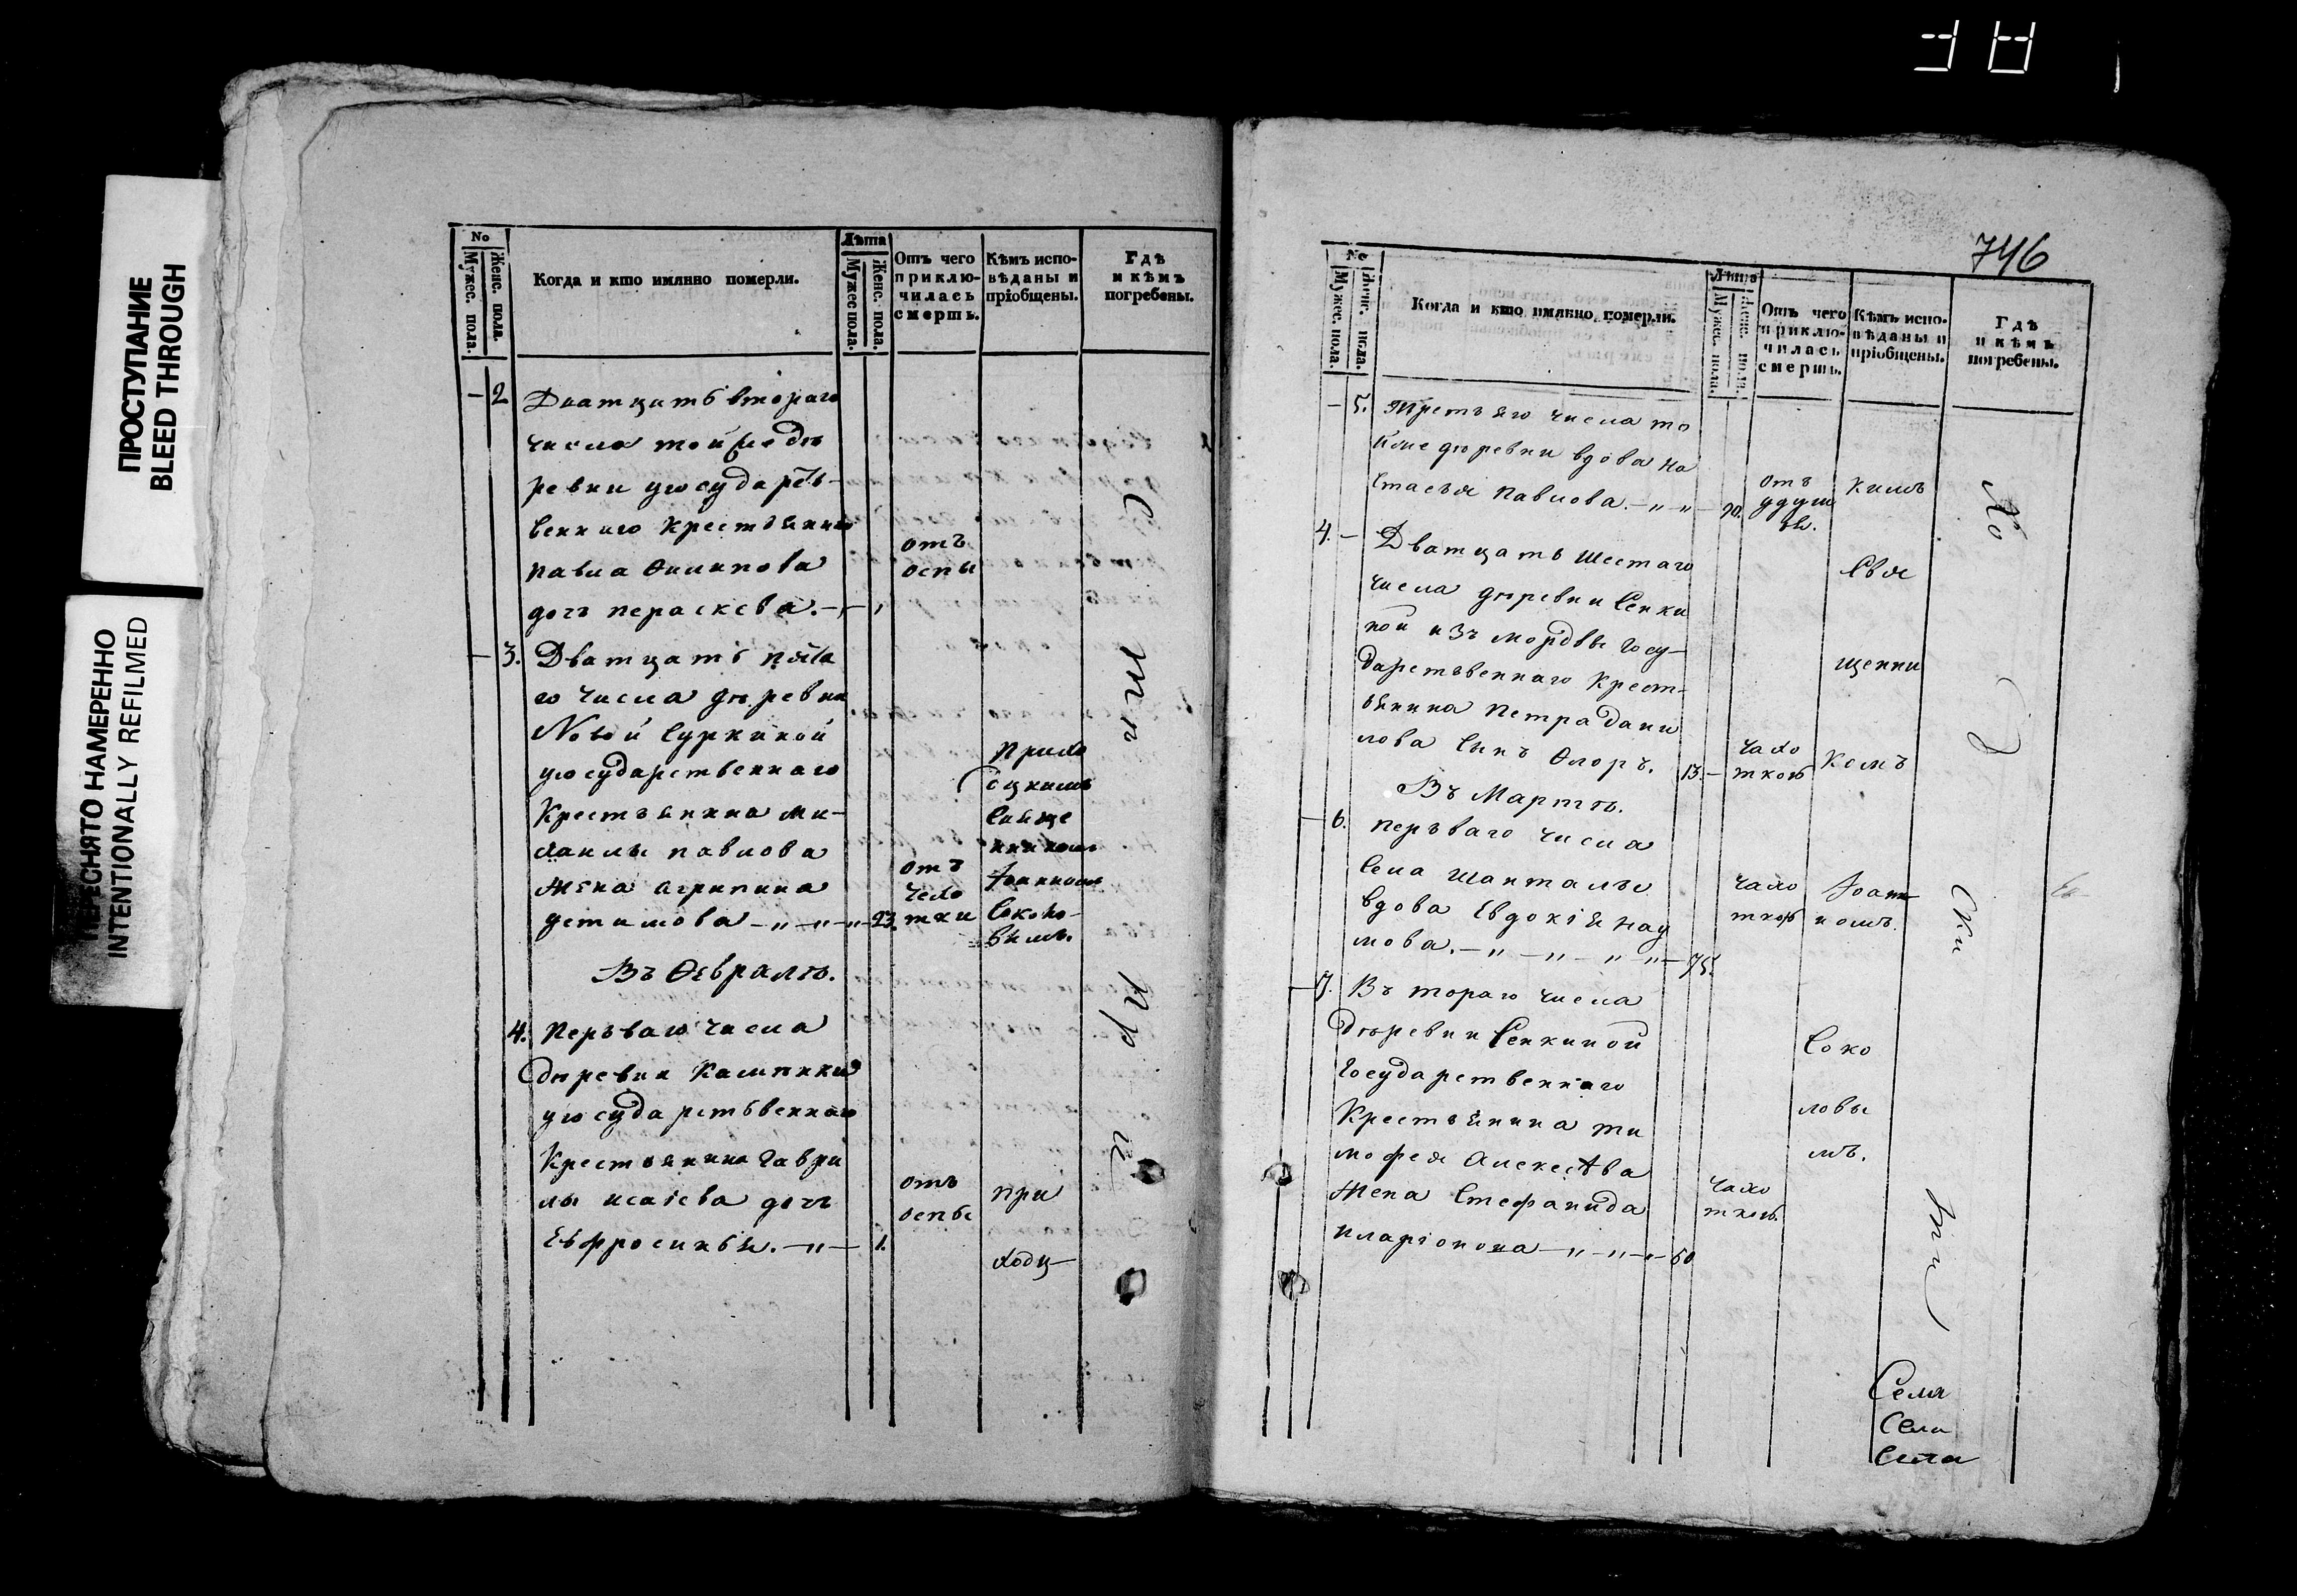 746
ПРОСТУПАНИЕ
BLEED THROUGH
ПЕРЕСНЯТО НАМЕРЕННО
INTENTIONALLY REFILMED
No
Мужес. пола.
Женс. пола.
Когда и кто имянно померли.
Лѣта
Мужес. пола.
Женс. пола.
Отъ чего приклю-
чилась
смерть.
Кѣмъ испо-
вѣданы и
пріобщены.
Гдѣ
и кѣмъ
погребены.
— 2 Дватцать втораго
числа той же де
ревни
веннаго крестьянина
Павла Филипова
дочь Пераскева. — „ —
отъ
оспы
— 3. Дватцать пята
го числа деревни
Новой Суркиной
государственнаго
Крестьянина Ми-
хаилы Павлова
жена Агрипина
Устимова — „ — „ — 23.
отъ
чехо
тки
Прихо
Іоанномъ
Соколо-
вымъ.
Въ Февралѣ.
4. Перъваго числа
деревни
государственнаго
Крестьянина Гаври
лы Исаіева дочь
Евфросинья. — „ — 1.
отъ
оспы
при
ходц-
При
No
Мужес. пола.
Женс. пола.
Когда и кто имянно померли.
Лѣта
Мужес. пола.
Женс. пола.
Отъ чего
приклю-
чилась
смерть.
Кѣмъ испо-
вѣданы и
пріобщены.
Гдѣ
и кѣмъ
погребены.
— 5. Третьяго числа то
йже деревни вдова На
стасья Павлова. — „ „ — 90.
отъ
удуш
ья.
кимъ
4. — Дватцать шестаго
числа деревни Сенки
ной изъ мордвы Госу-
дарственнаго Крест-
ьянина Петра Дани
лова сынъ Флоръ. 13. —
чахо
ткою
Свя
щенни
комъ
Въ Мартѣ.
— 6. Перъваго числа
села Шанталы
вдова Евдокія Нау
мова. — „ — „ — „ — 75.
чахо
ткою
Іоанн
номъ.
— 7. Въ тораго числа
Деревни Сенкиной
Государственнаго
Крестьянина Ти
мофея Алексѣева
жена Стефанида
Иларіонова — „ — „ — 60
чахо
ткою.
Соко
ловы
мъ.
хо
д
ски
Села
Села
Села